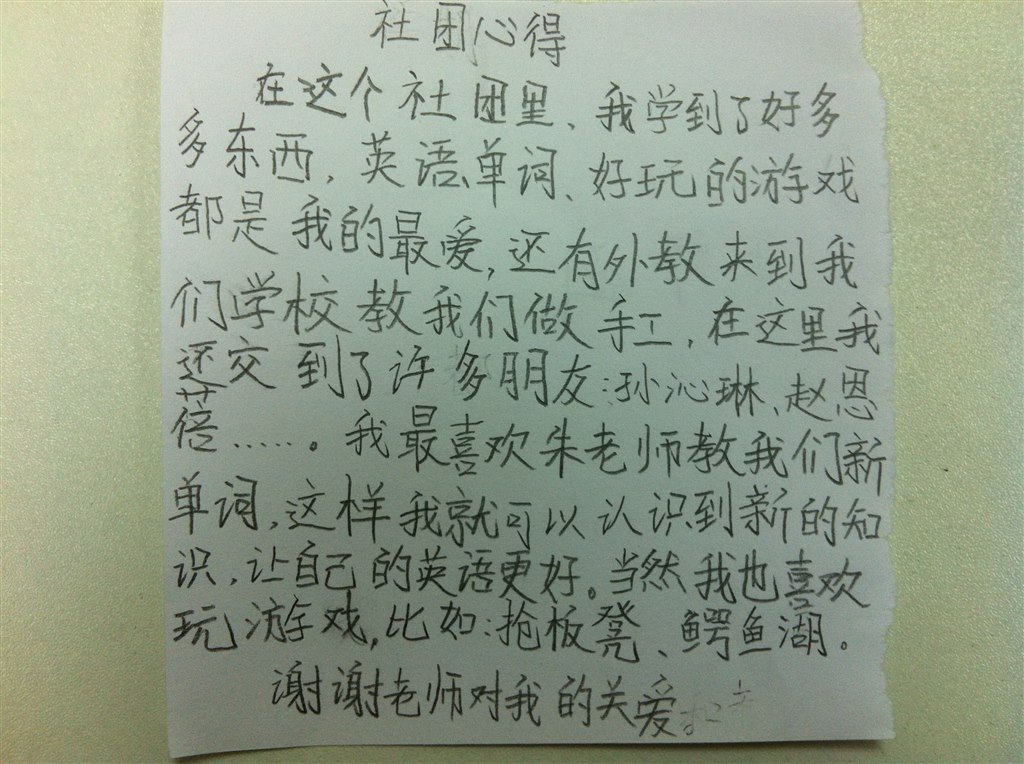 社团心得
在这个社团里、我学到了好多
多东西，英语单词、好玩的游戏
都是我的最爱，还有外教来到我
们学校教我们做手工，在这里我
还交到了许多朋友：孙沁琳、赵恩
蓓……。我最喜欢朱老师教我们新
单词，这样我就可以认识到新的知
识，让自己的英语更好。当然我也喜欢
玩游戏，比如：抢板凳、鳄鱼湖。
谢谢老师对我的关爱。